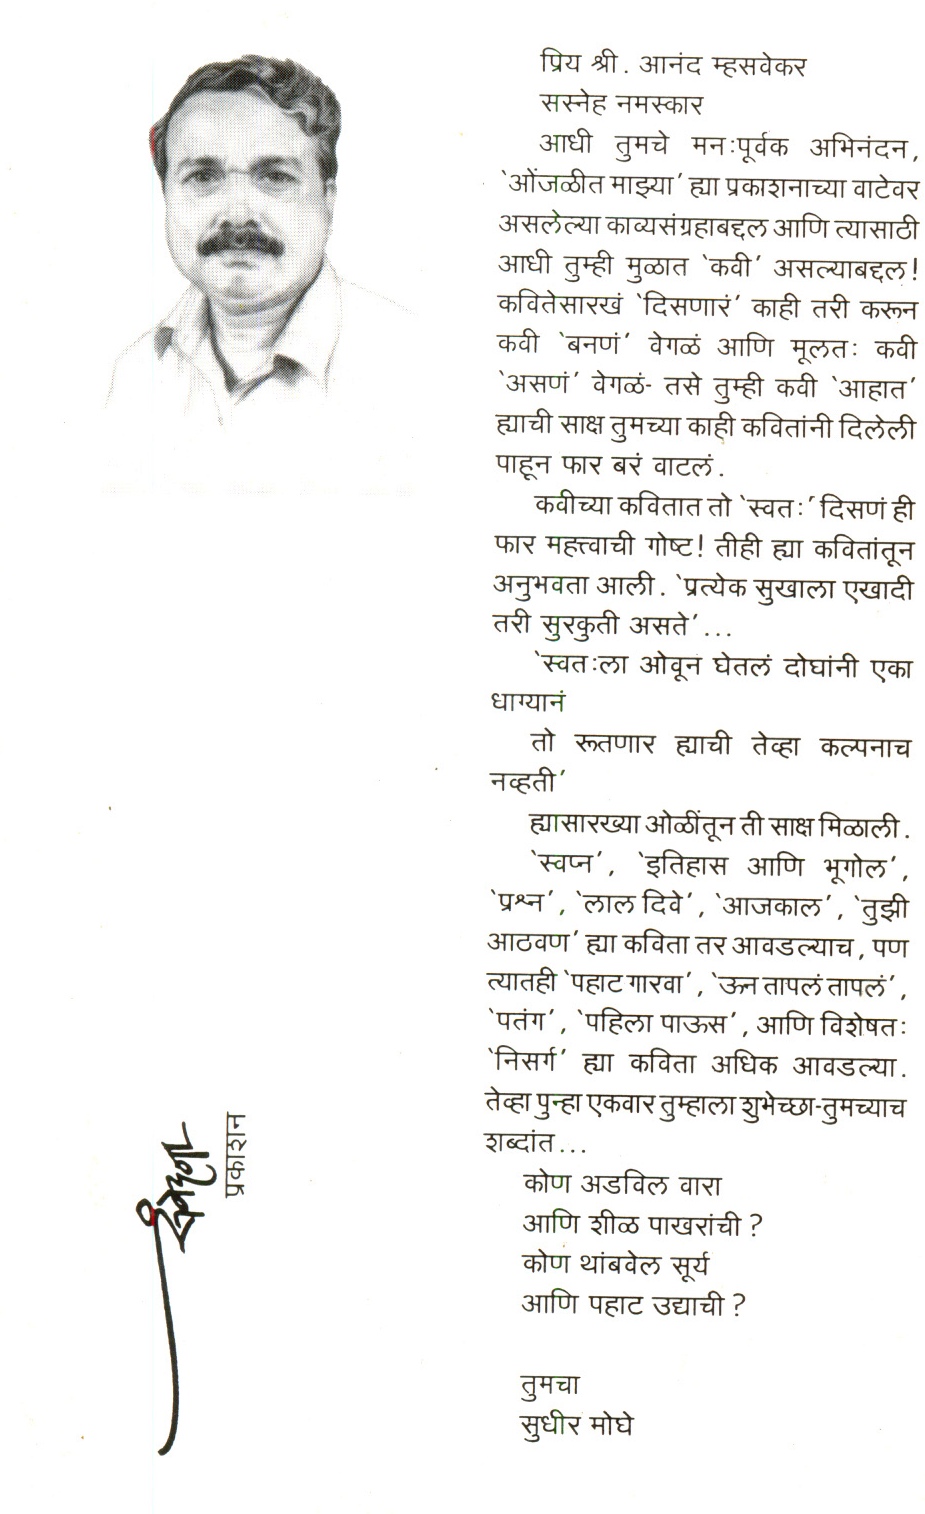 प्रिय श्री. आनंद म्हसवेकर
सस्नेह नमस्कार
आधी तुमचे मनःपूर्वक अभिनंदन,
‘ओंजळीत माझ्या’ ह्या प्रकाशनाच्या वाटेवर
असलेल्या काव्यसंग्रहाबद्दल आणि त्यासाठी
आधी तुम्ही मुळात ‘कवी’ असल्याबद्दल!
कवितेसारखं ‘दिसणारं’ काही तरी करून
कवी ‘बनणं’ वेगळं आणि मूलतः कवी
‘असणं’ वेगळं- तसे तुम्ही कवी ‘आहात’
ह्याची साक्ष तुमच्या काही कवितांनी दिलेली
पाहून फार बरं वाटलं.
कवीच्या कवितात तो ‘स्वतः’ दिसणं ही
फार महत्त्वाची गोष्ट! तीही ह्या कवितांतून
अनुभवता आली. ‘प्रत्येक सुखाला एखादी
तरी सुरकुती असते’...
‘स्वतःला ओवून घेतलं दोघांनी एका
धाग्यानं
तो रूतणार ह्याची तेव्हा कल्पनाच
नव्हती’
ह्यासारख्या ओळींतून ती साक्ष मिळाली.
‘स्वप्न’, ‘इतिहास आणि भूगोल’,
‘प्रश्न’, ‘लाल दिवे’, ‘आजकाल’, ‘तुझी
आठवण’ ह्या कविता तर आवडल्याच, पण
त्यातही ‘पहाट गारवा’, ‘ऊन तापलं तापलं’,
‘पतंग’, ‘पहिला पाऊस’, आणि विशेषतः
‘निसर्ग’ ह्या कविता अधिक आवडल्या.
तेव्हा पुन्हा एकवार तुम्हाला शुभेच्छा-तुमच्याच
शब्दांत...
कोण अडविल वारा
आणि शीळ पाखरांची?
कोण थांबवेल सूर्य
आणि पहाट उद्याची?
तुमचा
सुधीर मोघे
प्रकाशन